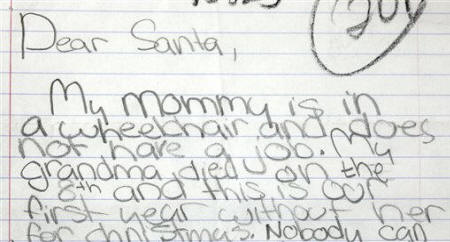 Dear Santa,
My mommy is in
a wheelchair and does
not have a job. My
grandma died on the
8th and this is our
first year without her
for christmas. Nobody can